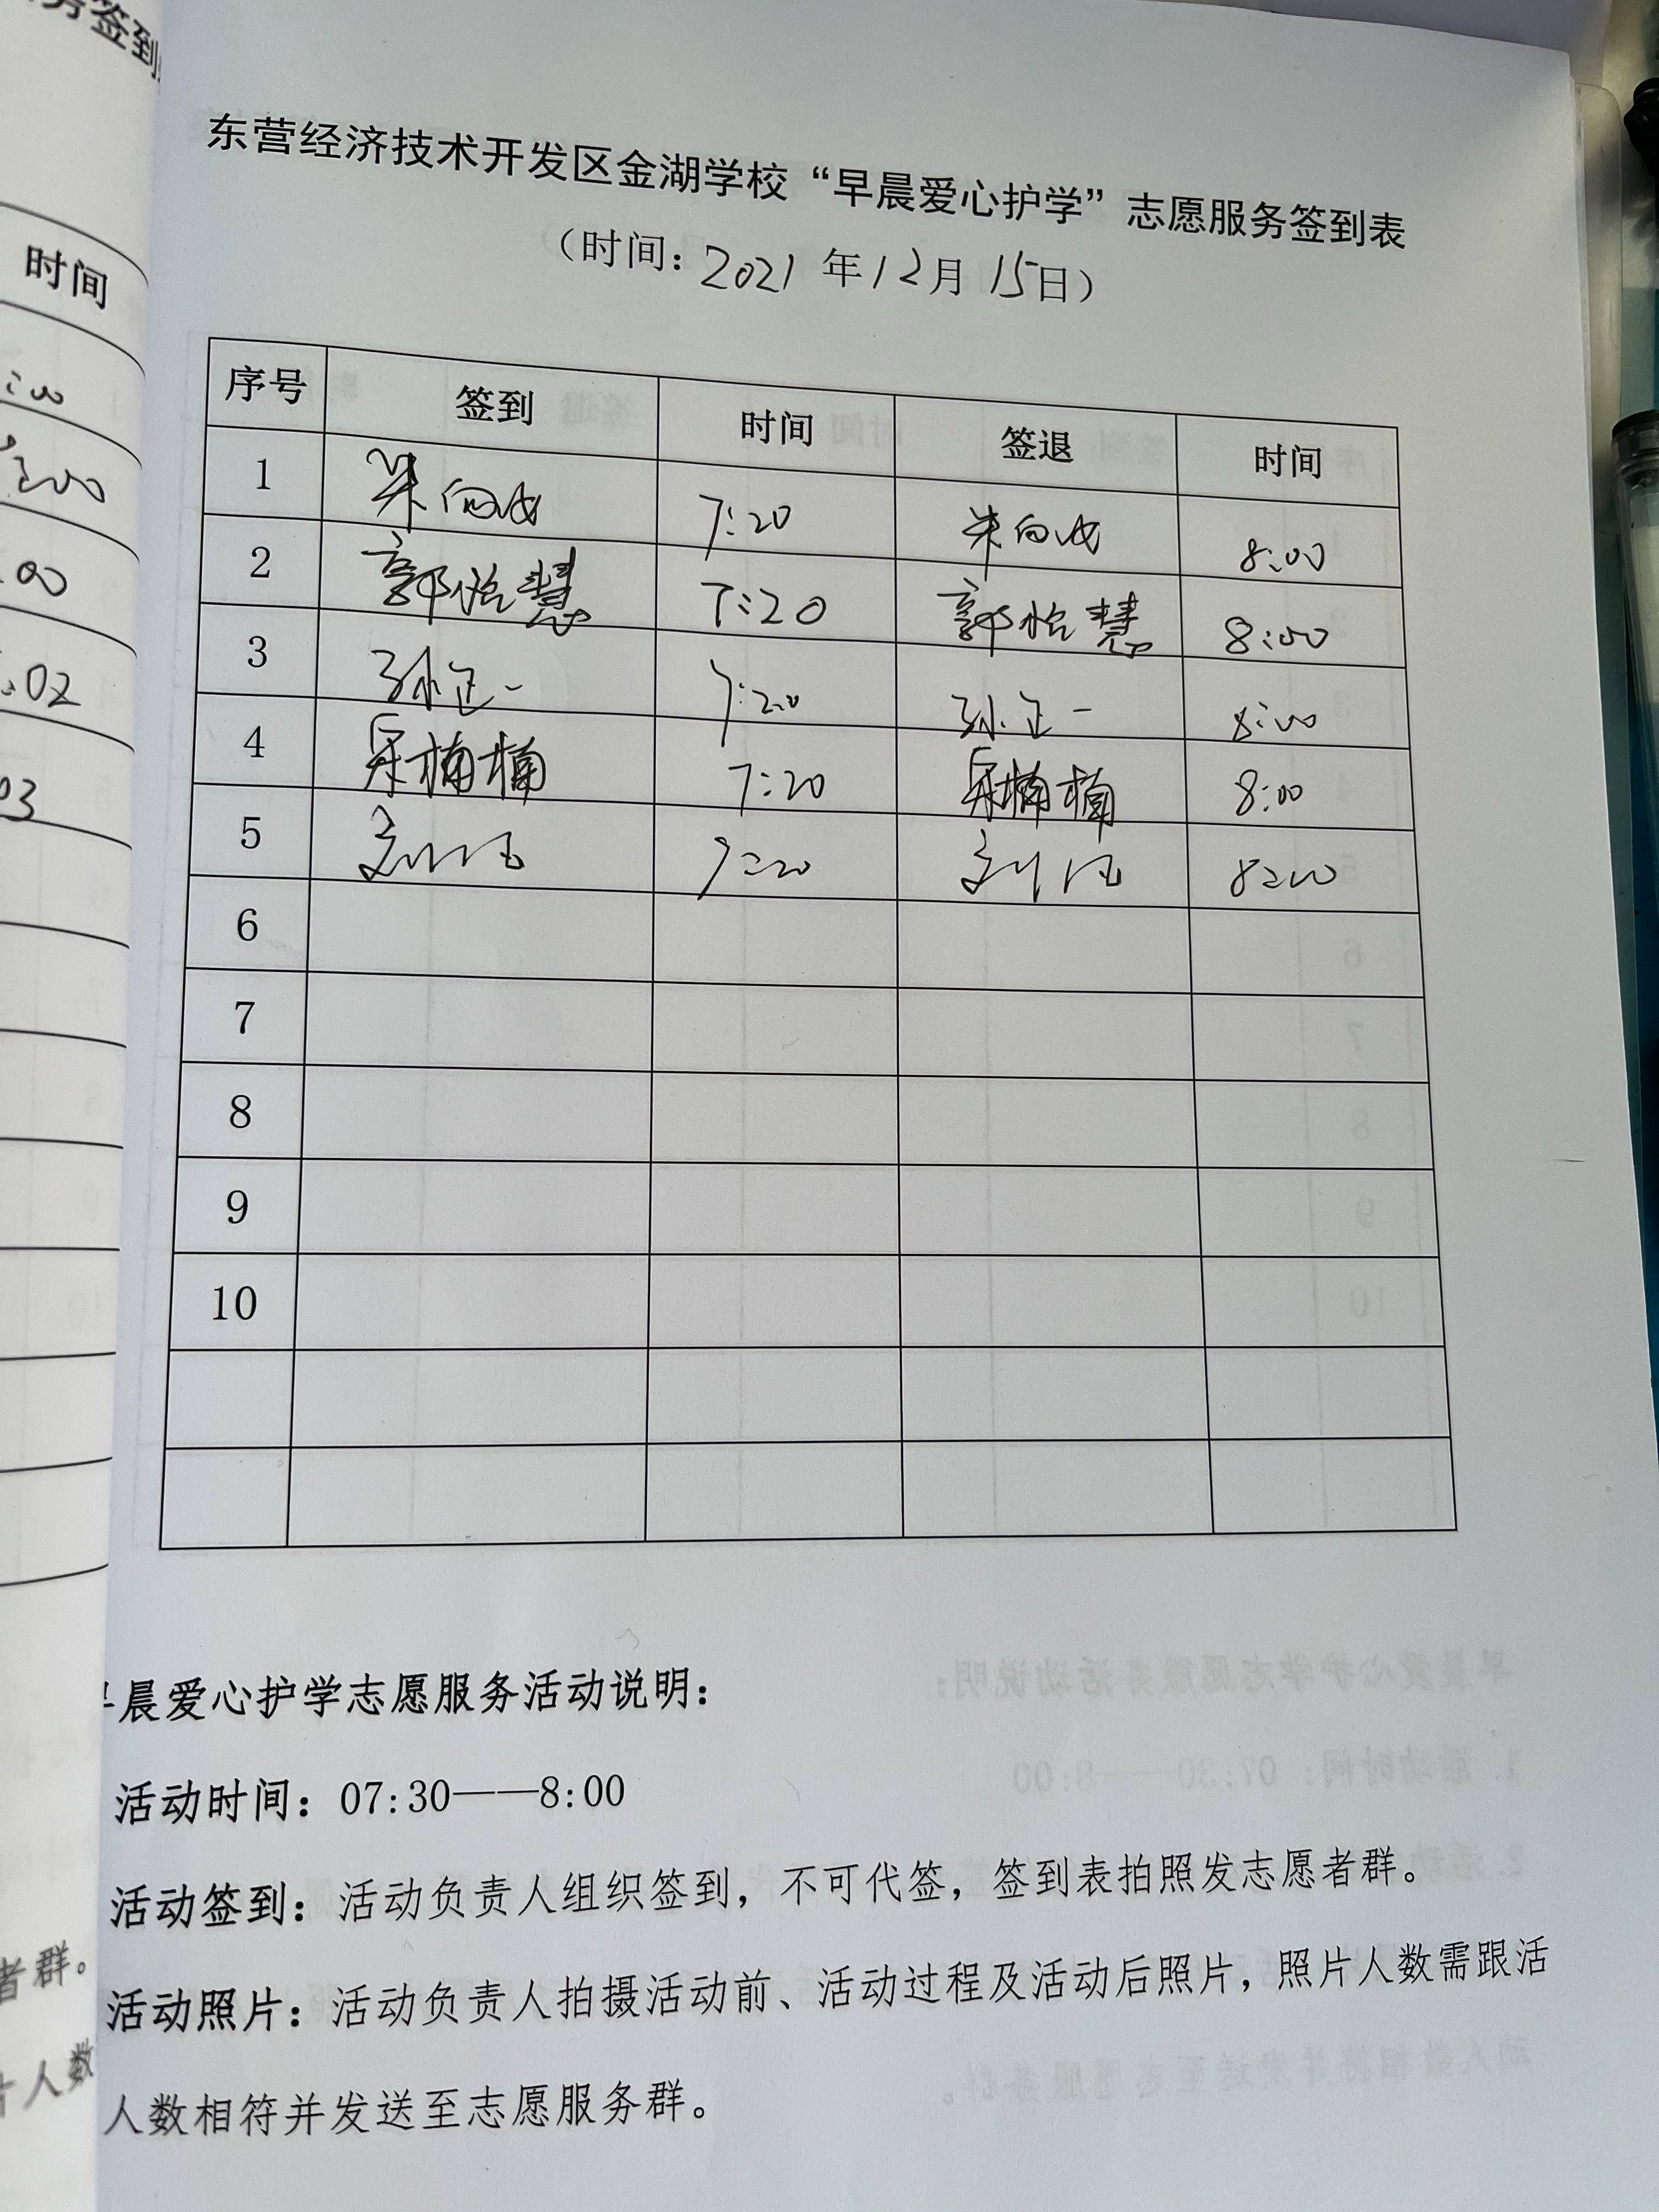 务签到
时间
:00
:00
:00
:02
03
者群。
片人数
东营经济技术开发区金湖学校“早晨爱心护学”志愿服务签到表
（时间：2021年12月15日）
序号 签到 时间 签退 时间
1 7:20 8:00
2 郭怡慧 7:20 郭怡慧 8:00
3 孙正一 7:20 孙正一 8:00
4 楠楠 7:20 楠楠 8:00
5 刘 7:20 刘 8:00
6
7
8
9
10
晨爱心护学志愿服务活动说明：
活动时间：07:30——8:00
活动签到：活动负责人组织签到，不可代签，签到表拍照发志愿者群。
活动照片：活动负责人拍摄活动前、活动过程及活动后照片，照片人数需跟活
人数相符并发送至志愿服务群。